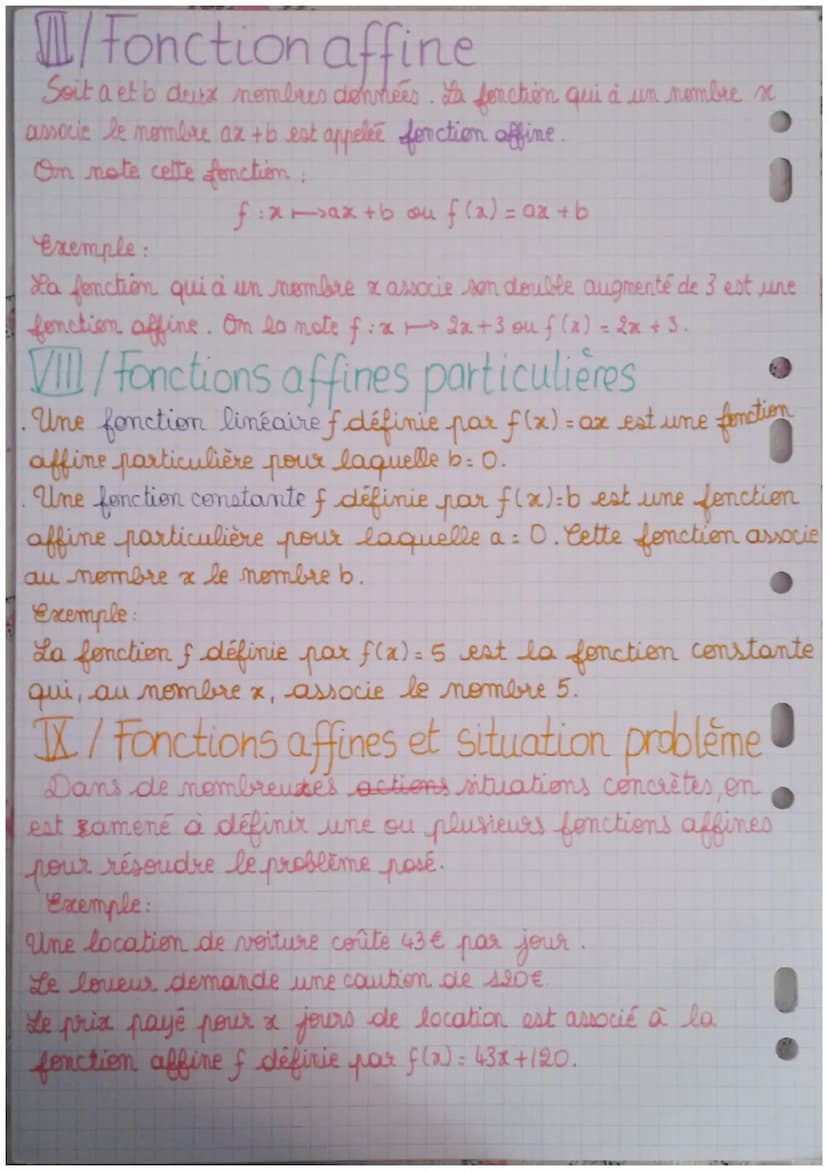 VII/Fonction affine
Soit a et b deux nombres données. La fonction qui à un nombre x
associe le nombre ax+b est appelée fonction affine.
On note cette fonction :
f : x ↦ ax + b ou f(x) = ax + b
Exemple :
La fonction qui à un nombre x associe son double augmenté de 3 est une
fonction affine. On la note f : x ↦ 2x+3 ou f(x) = 2x + 3.
VIII/Fonctions affines particulières
. Une fonction linéaire f définie par f(x) = ax est une fonction
affine particulière pour laquelle b = 0.
. Une fonction constante f définie par f(x) = b est une fonction
affine particulière pour laquelle a = 0. Cette fonction associe
au nombre x le nombre b.
Exemple :
La fonction f définie par f(x) = 5 est la fonction constante
qui, au nombre x, associe le nombre 5.
IX/Fonctions affines et situation problème
Dans de nombreuses actions situations concrètes, on
est ramené à définir une ou plusieurs fonctions affines
pour résoudre le problème posé.
Exemple :
Une location de voiture coûte 43€ par jour.
Le loueur demande une caution de 120€
Le prix payé pour x jours de location est associé à la
fonction affine f définie par f(x) = 43x+120.